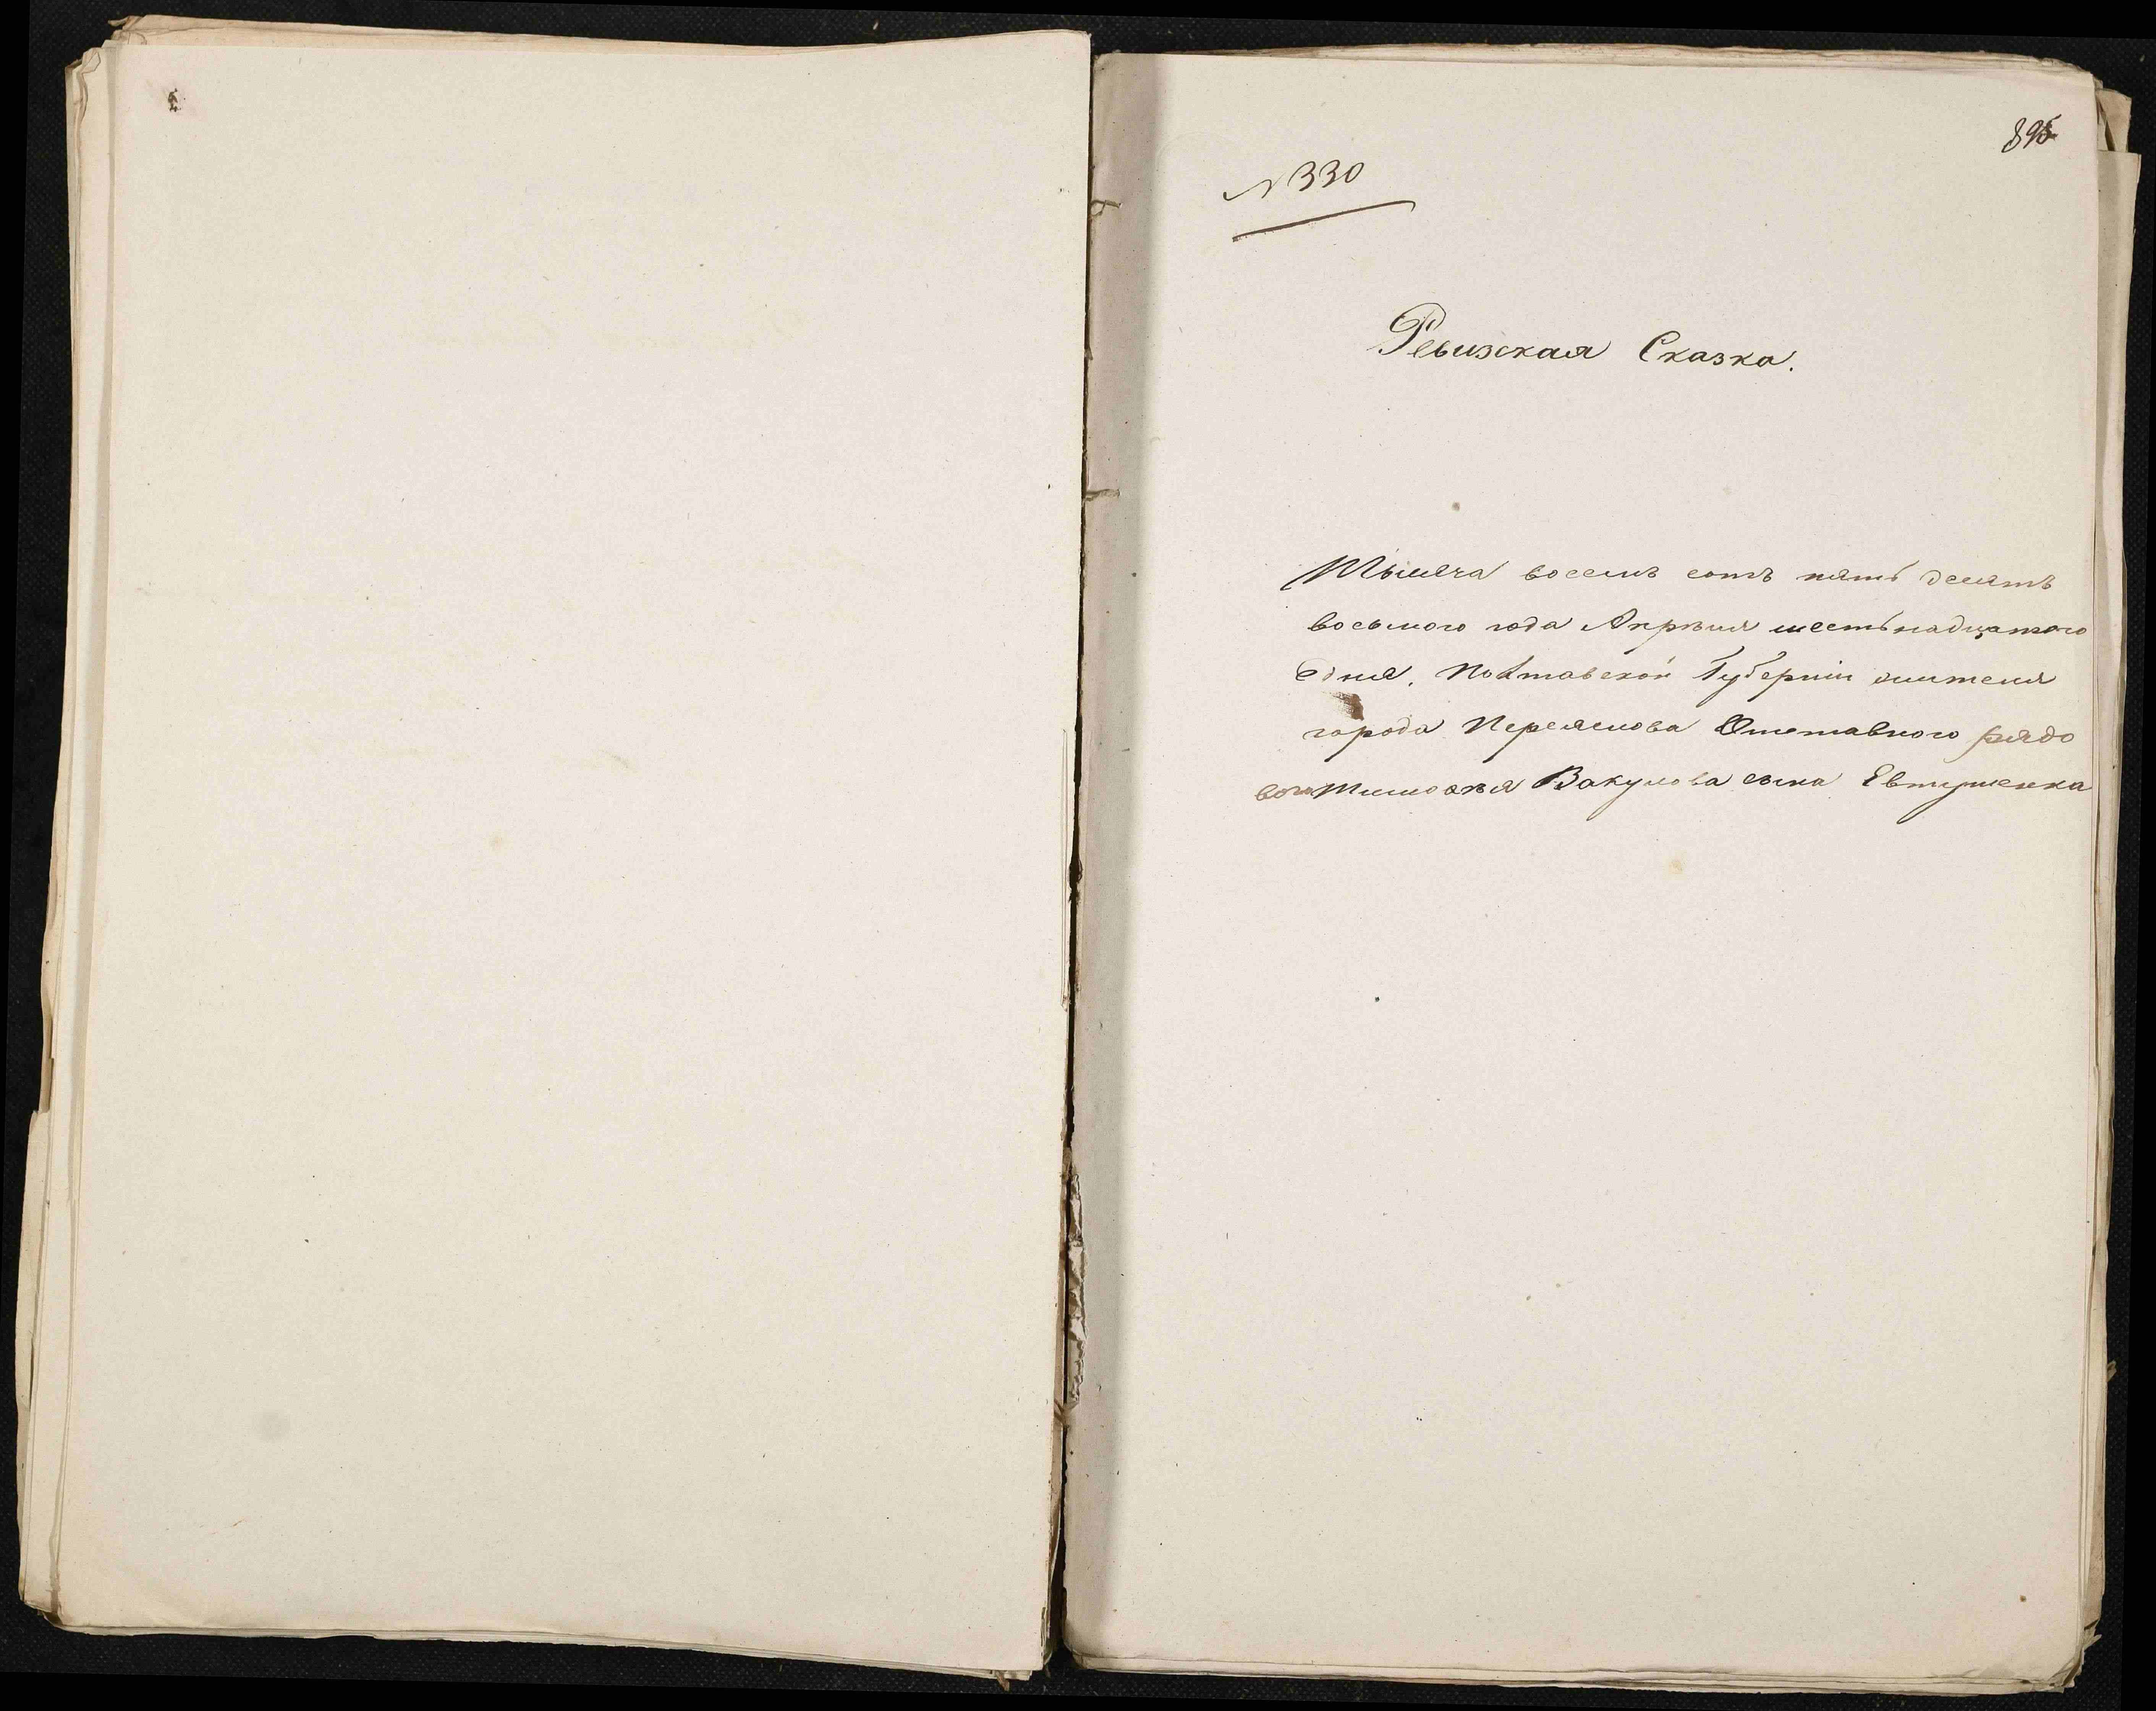 895
№ 330
Ревизская Сказка.
Тысяча восемь сотъ пять десятъ
восьмого года Апрѣля шестьнадцатого
дня, Полтавской Губерніи жителя
города Переяслова Отставного рядо
вого Тимофѣя Вакулова сына Евтушенка